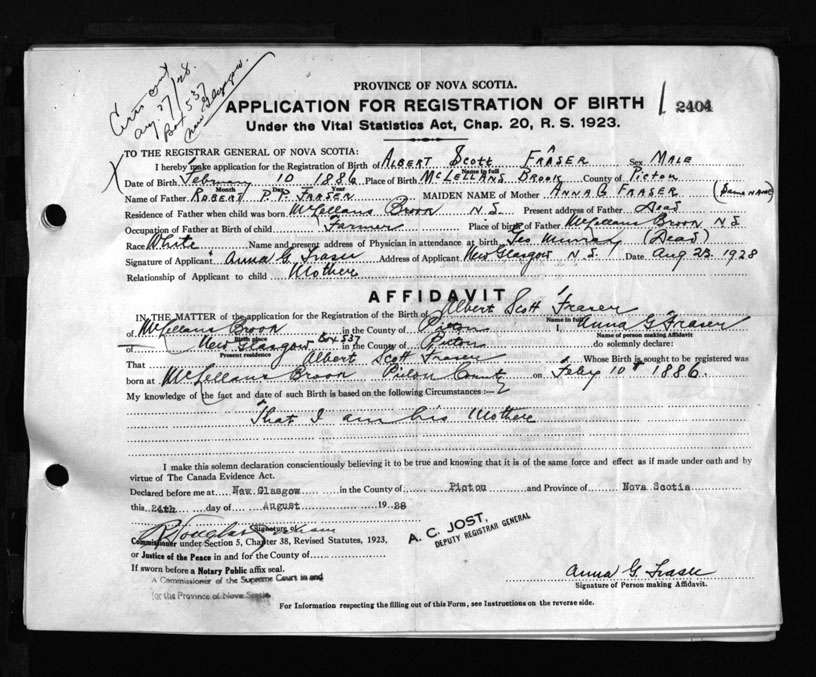 Cert. out
Aug 27/28.
Box 537
New Glasgow.
PROVINCE OF NOVA SCOTIA.
APPLICATION FOR REGISTRATION OF BIRTH 2404
Under the Vital Statistics Act, Chap. 20, R. S. 1923.
TO THE REGISTRAR GENERAL OF NOVA SCOTIA:
I hereby make application for the Registration of Birth of Albert Scott Fraser Sex Male
Name in full
Date of Birth February 10 1886 Place of Birth McLellans Brook County of Pictou
Month Day Year
Name of Father Robert P. Fraser MAIDEN NAME of Mother Anna G Fraser (Same Name)
Residence of Father when child was born McLellans Brook N.S. Present address of Father Dead
Occupation of Father at Birth of child Farmer Place of birth of Father McLellans Brook N.S.
Race White Name and present address of Physician in attendance at birth Geo Murray (Dead)
Signature of Applicant Anna G Fraser Address of Applicant New Glasgow N.S. Date Aug 23 1928
Relationship of Applicant to child Mother
AFFIDAVIT
IN THE MATTER of the application for the Registration of the Birth of Albert Scott Fraser
Name in full
of McLellans Brook in the County of Pictou I, Anna G Fraser
Birth place Name of person making Affidavit
of New Glasgow Box 537 in the County of Pictou do solemnly declare:
Present residence
That Albert Scott Fraser Whose Birth is sought to be registered was
born at McLellans Brook Pictou County on Feby 10th 1886.
My knowledge of the fact and date of such Birth is based on the following Circumstances :—
That I am his Mother
I make this solemn declaration conscientiously believing it to be true and knowing that it is of the same force and effect as if made under oath and by
virtue of The Canada Evidence Act.
Declared before me at New Glasgow in the County of Pictou and Province of Nova Scotia
this 24th day of August 1928
Signature of
R Douglas Graham
Commissioner under Section 5, Chapter 38, Revised Statutes, 1923,
or Justice of the Peace in and for the County of
If sworn before a Notary Public affix seal.
A Commissioner of the Supreme Court in and
for the Province of Nova Scotia
A. C. JOST,
DEPUTY REGISTRAR GENERAL
Anna G Fraser
Signature of Person making Affidavit.
For Information respecting the filling out of this Form, see Instructions on the reverse side.